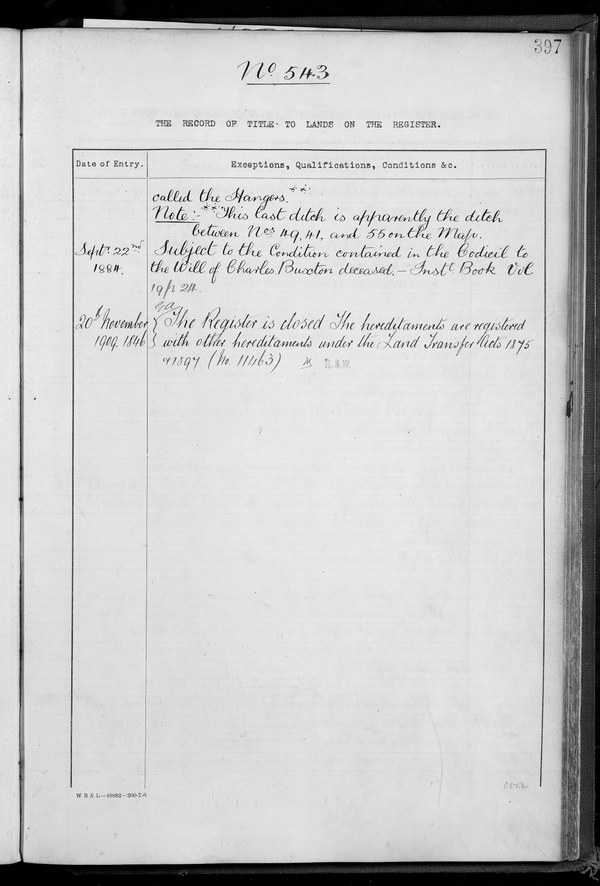 397
No. 543
THE RECORD OF TITLE TO LANDS ON THE REGISTER.
Date of Entry.
Exceptions, Qualifications, Conditions &c.
called the Hangers. **
Note:- ** This last ditch is apparently the ditch
between Nos 49, 41, and 55 on the Map.
Septr 22nd
1884.
Subject to the Condition contained in the Codicil to
the Will of Charles Buxton deceased. — Instt Book Vol
19 p 24.
20th November
1909. 1846
The Register is closed The hereditaments are registered
with other hereditaments under the Land Transfer Acts 1875
& 1897 (No. 11463)
W B & L—19882—200-7-6